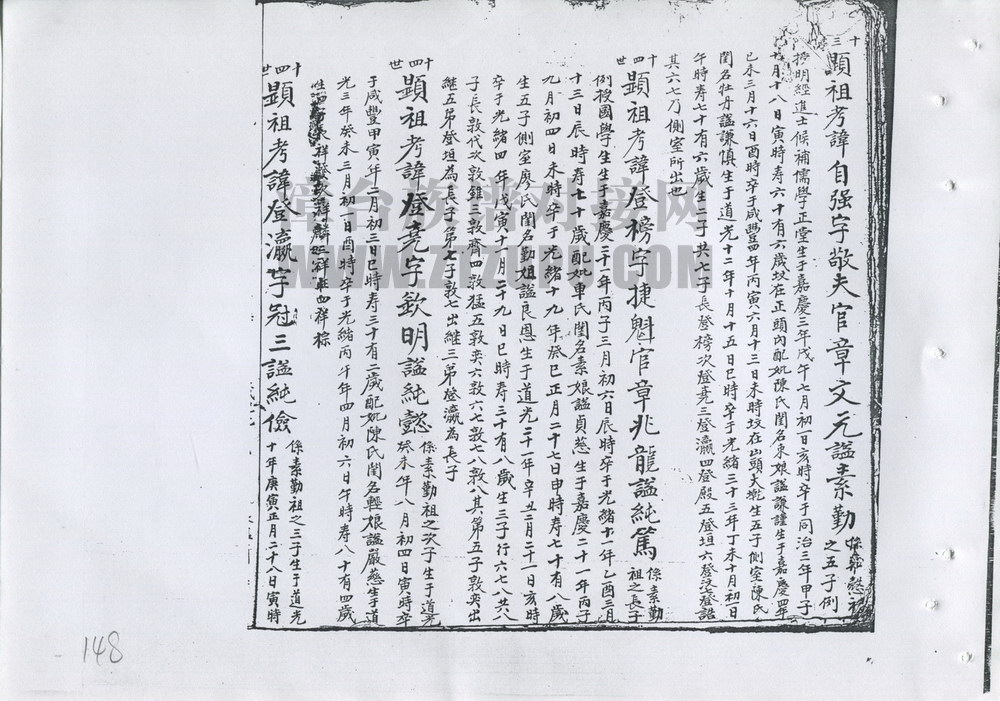 十三世
顕祖考諱自强字敬夫官章文元謚素勤
之五子例
授明經進士候補儒學正堂生于嘉慶三年戊午七月初一日亥時卒于同治三年甲子
月十八日寅時寿六十有六歲坟在正頭內配妣陳氏閨名東娘謚謙謹生于嘉慶四年
已未三月十六日酉時卒于咸豐四年丙寅六月十三日未時坟在出頭大坵生五子側室陳氏
閨名牡丹謚謙慎生于道光十二年十月十五日巳時卒于光緒三十三年丁未十月初一日
午時寿七十有六歲生二子共七子長登榜次登堯三登瀛四登殿五登垣六登墀七登誥
其六七乃側室所出也
十四世
顕祖考諱登榜字捷魁官章兆龍謚純篤
係素勤
祖之長子
例授國學生生于嘉慶二十一年丙子三月初六日辰時卒于光緒十一年乙酉三月
十三日辰時寿七十歲配妣車氏閨名素娘謚貞慈生于嘉慶二十一年丙子
九月初四日未時卒于光緒十九年癸巳正月二十七日申時寿七十有八歲
生五子側室廖氏閨名勤姐謚良恩生于道光二十一年辛丑二月二十一日亥時
卒于光緒四年戊寅十一月二十九日巳時寿三十有八歲生三子行六七八共八
子長敦代次敦錐三敦齊四敦猛五敦奕六敦六七敦七八敦八其第五子敦奕出
継五弟登垣為長子第七子敦七出継三弟登瀛為長子
十四世
顕祖考諱登堯字欽明謚純懿
係素勤祖之次子生于道光
癸未年八月初四日寅時卒
于咸豐甲寅年二月初三日巳時寿三十有二歲配妣陳氏閨名輕娘謚嚴慈生于道
光三年癸未三月初一日酉時卒于光緒丙午年四月初六日午時寿八十有四歲
祥發次祥麟三祥四祥棕
十四世
顕祖考諱登瀛字冠三謚純儉
係素勤祖之三子生于道光
十年庚寅正月二十八日寅時
148
WWW.ZUPU.CN